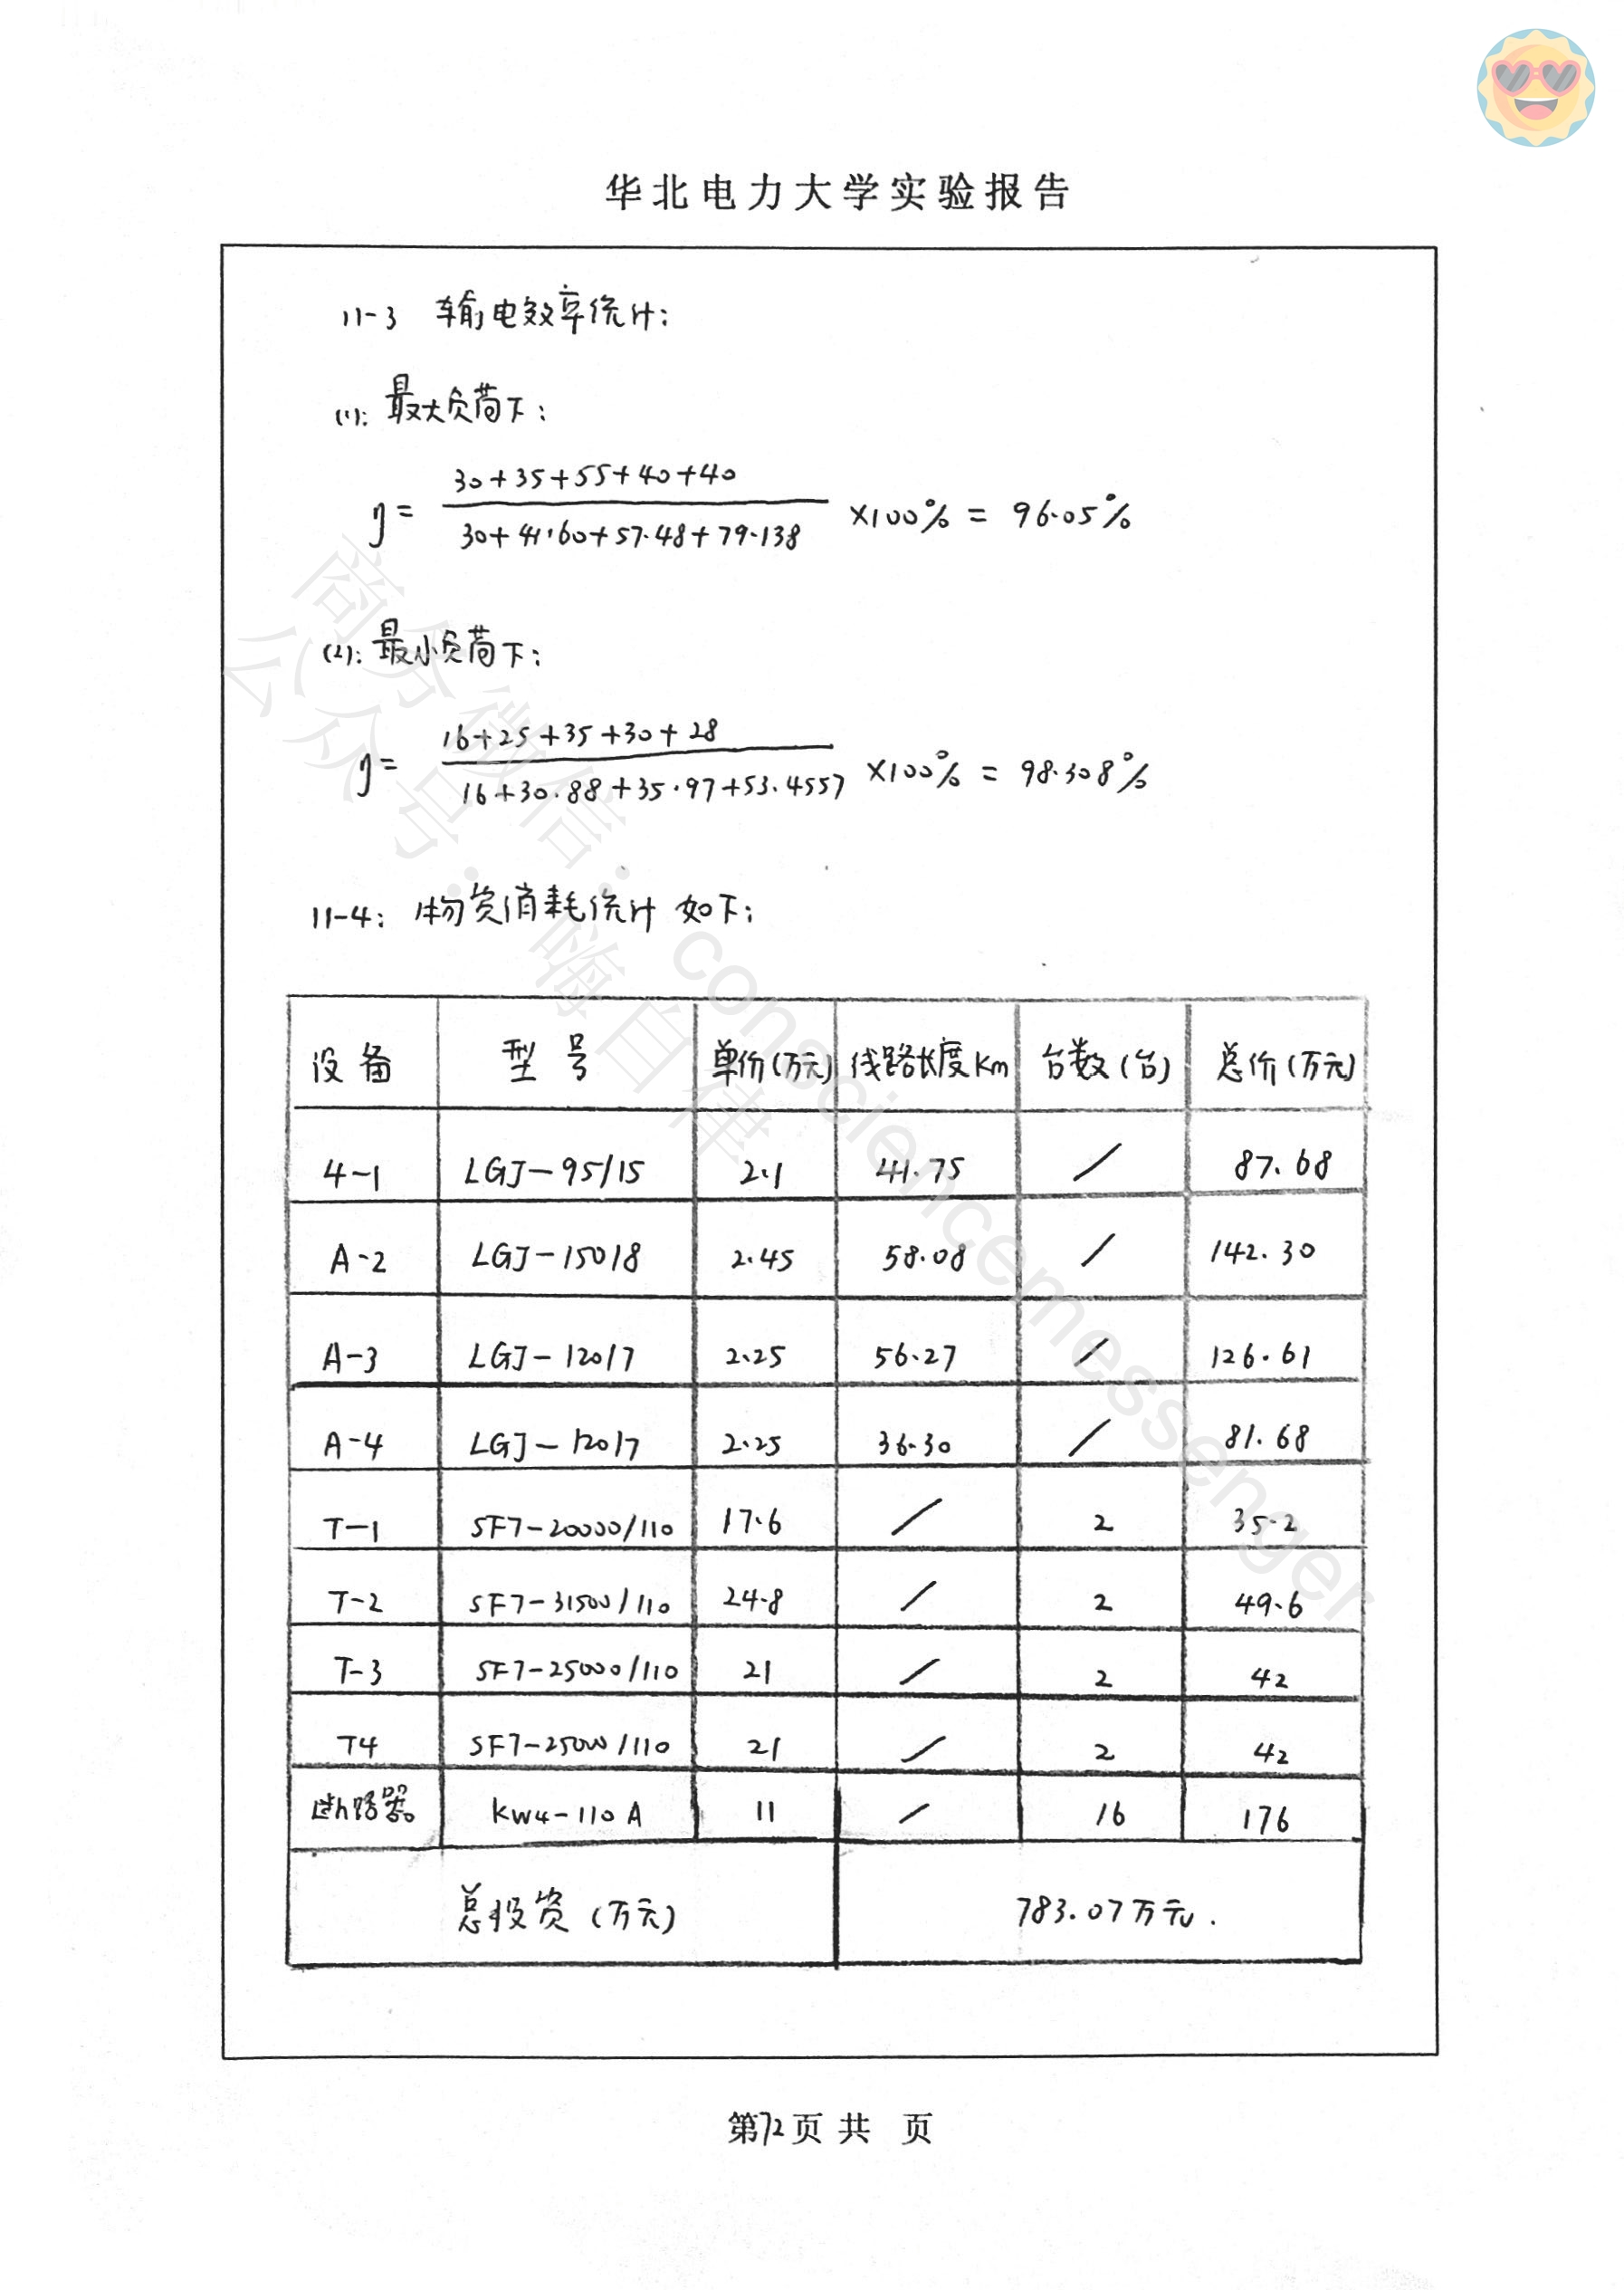 华北电力大学实验报告
11-3 输电效率统计:
(1): 最大负荷下:
η = (30+35+55+40+40)/(30+41.60+57.48+79.138) ×100% = 96.05%
(2): 最小负荷下:
η = (16+25+35+30+28)/(16+30.88+35.97+53.4557) ×100% = 98.308%
11-4: 物资消耗统计 如下:
设备 型号 单价(万元) 线路长度Km 台数(台) 总价(万元)
4-1 LGJ-95/15 2.1 41.75 / 87.68
A-2 LGJ-150/8 2.45 58.08 / 142.30
A-3 LGJ-120/7 2.25 56.27 / 126.61
A-4 LGJ-120/7 2.25 36.30 / 81.68
T-1 SF7-20000/110 17.6 / 2 35.2
T-2 SF7-31500/110 24.8 / 2 49.6
T-3 SF7-25000/110 21 / 2 42
T4 SF7-25000/110 21 / 2 42
断路器 KW4-110A 11 / 16 176
总投资(万元) 783.07万元.
第72页 共 页
商务微信: consciencemessenger
公众号: 嗨自律